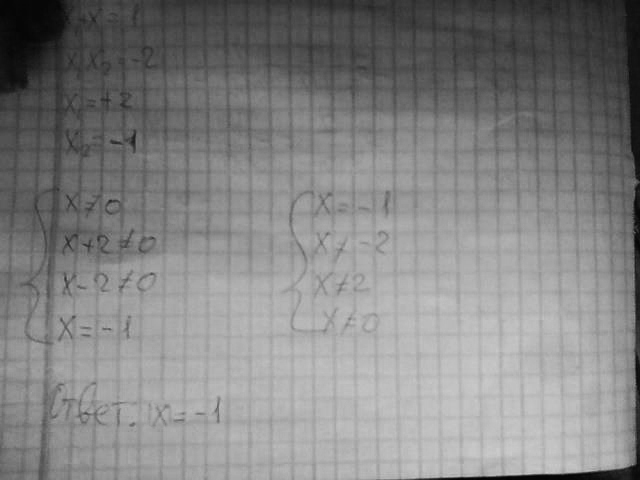 x₁+x=1
x₁x₂=-2
x₁=+2
x₂=-1
x≠0
x+2≠0
x-2≠0
x=-1
x=-1
x≠-2
x≠2
x≠0
Ответ. x=-1